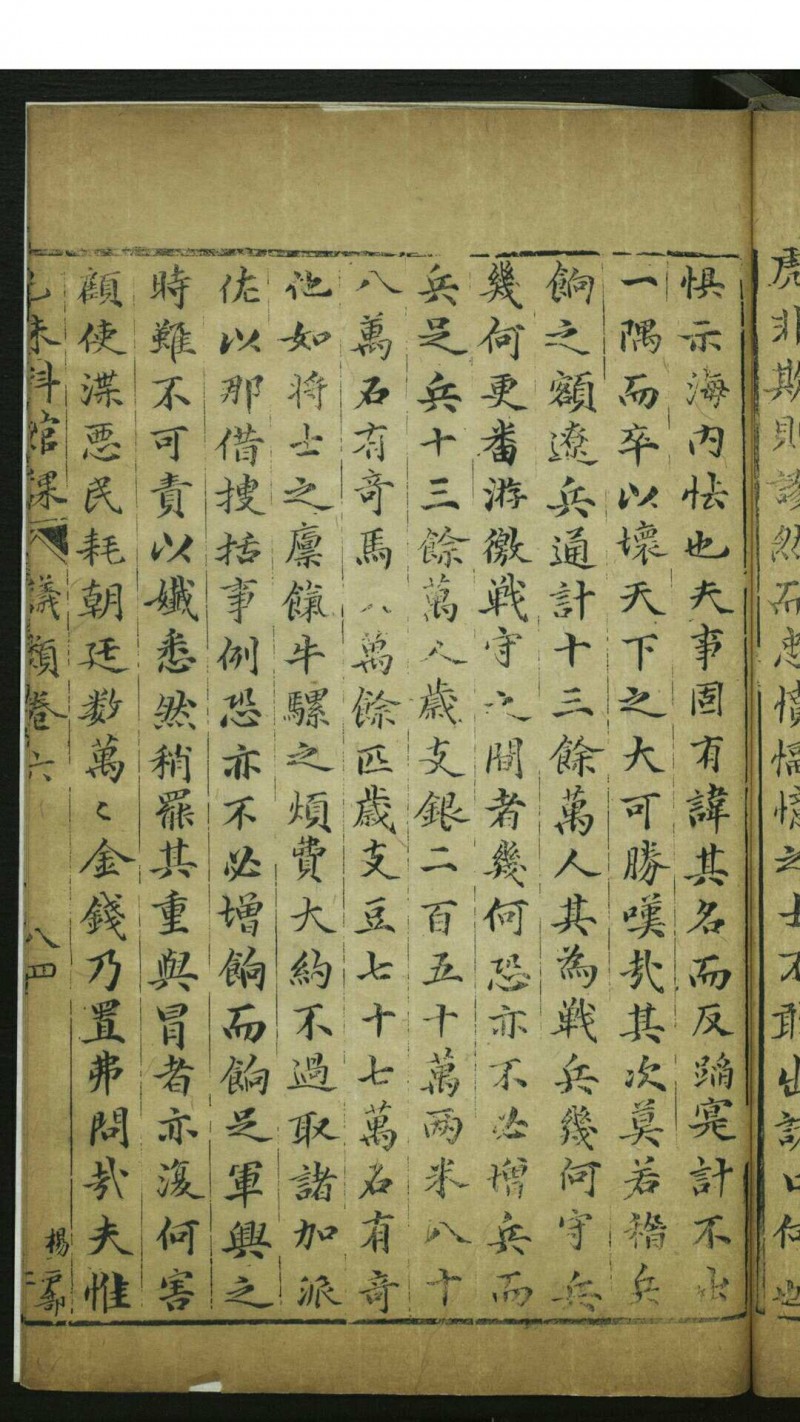 虎非欺則諺然而忠憤慍憶之士不敢出諸口何也
惧示海内怯也夫事固有諱其名而反蹈寔計不出
一隅而卒以壞天下之大可勝嘆㢤其次莫若稽兵
餉之額遼兵通計十三餘萬人其為戰兵幾何守兵
幾何更畨游徼戰守之間者幾何恐亦不必增兵而
兵足兵十三餘萬人歲支銀二百五十萬兩米八十
八萬石有奇馬八萬餘匹歲支豆七十七萬石有奇
他如将士之廪餼牛騾之煩費大約不過取諸加派
佐以那借搜括事例恐亦不必增餉而餉足軍興之
時難不可責以孅悉然稍罷其重與冒者亦復何害
顧使渫悪民耗朝廷数萬〻金錢乃置弗問㢤夫惟
己未科館課 議類卷六 八四
楊